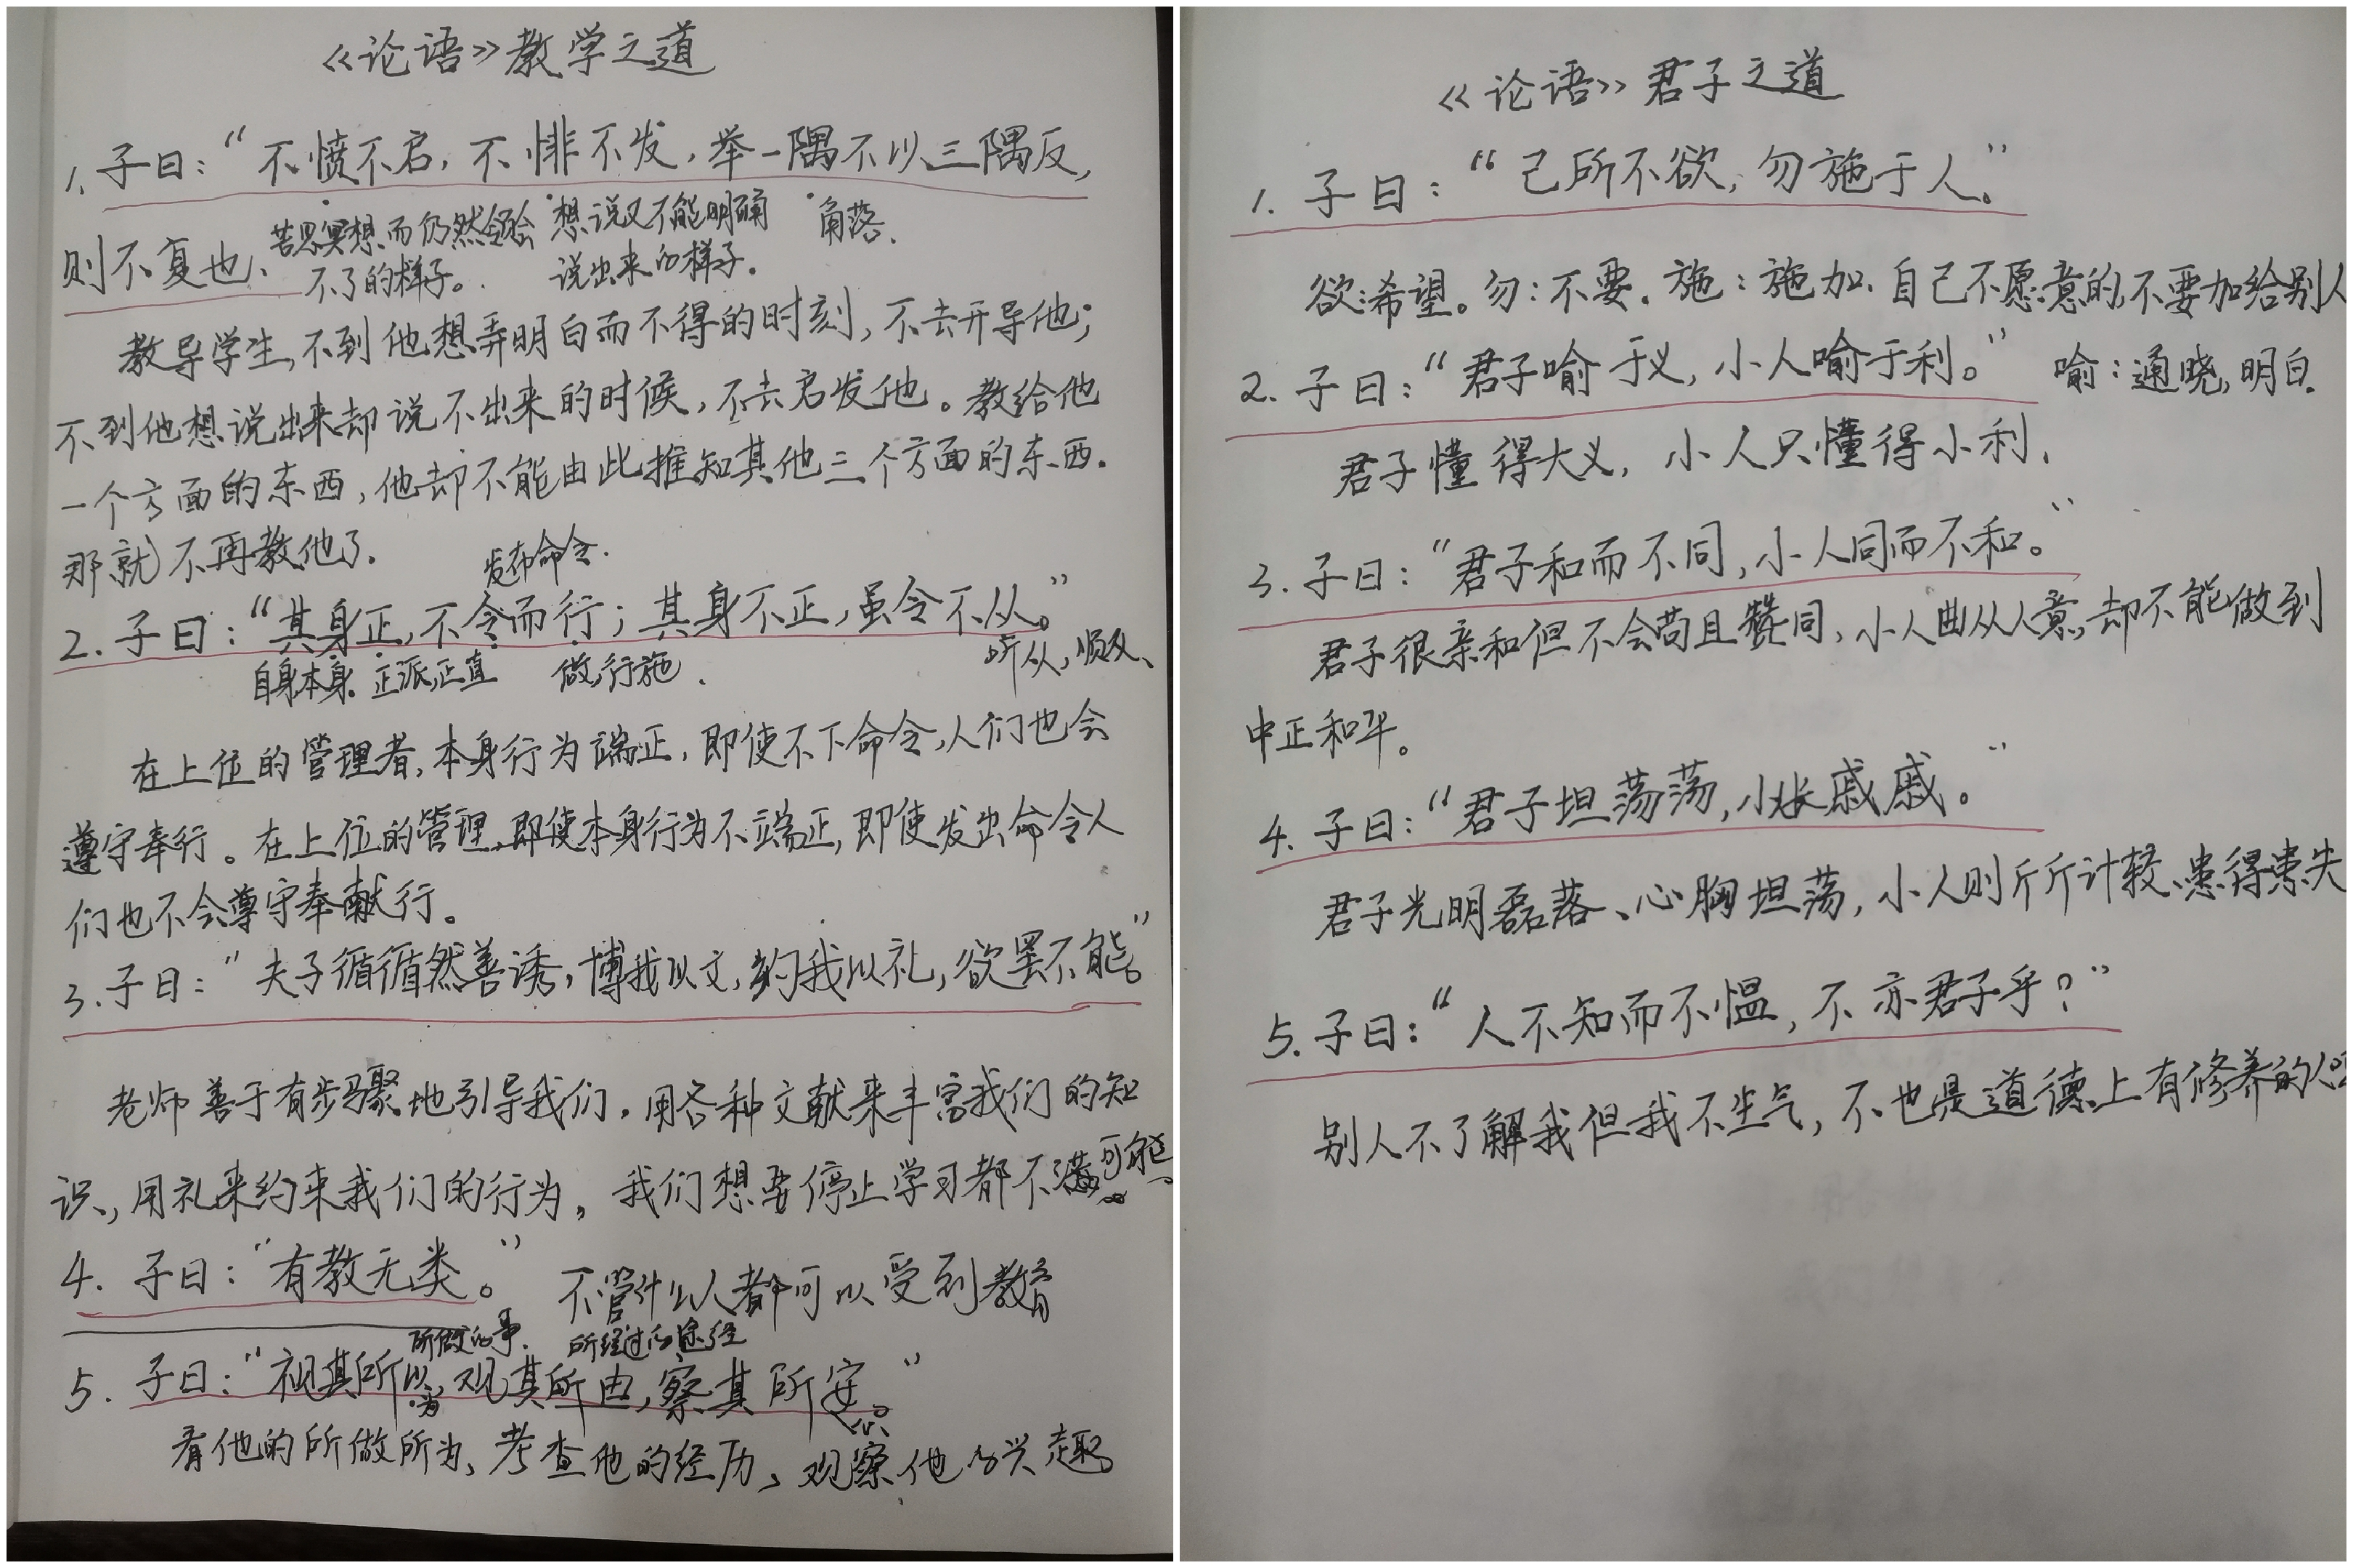 《论语》教学之道
1. 子曰：“不愤不启，不悱不发，举一隅不以三隅反，
苦思冥想而仍然领会 想说又不能明确 角落.
则不复也、不了的样子。 说出来的样子。
教导学生，不到他想弄明白而不得的时刻，不去开导他；
不到他想说出来却说不出来的时候，不去启发他。教给他
一个方面的东西，他却不能由此推知其他三个方面的东西.
那就不再教他了.
发布命令.
2. 子曰：“其身正，不令而行；其身不正，虽令不从。”
自身本身. 正派,正直 做,行施. 听从，顺从、
在上位的管理者，本身行为端正，即使不下命令，人们也会
遵守奉行。在上位的管理，即使本身行为不端正，即使发出命令人
们也不会遵守奉献行。
3. 子曰：“夫子循循然善诱，博我以文，约我以礼，欲罢不能。”
老师善于有步骤地引导我们，用各种文献来丰富我们的知
识，用礼来约束我们的行为，我们想要停止学习都不可能
4. 子曰：“有教无类。” 不管什么人都可以受到教育
所做的事. 所经过的途径
5. 子曰：“视其所以，观其所由，察其所安。”
为
看他的所做所为、考查他的经历、观察他的兴趣
《论语》君子之道
1. 子曰：“己所不欲，勿施于人。”
欲:希望。勿：不要。施：施加. 自己不愿意的,不要加给别人
2. 子曰：“君子喻于义，小人喻于利。” 喻：通晓,明白.
君子懂得大义，小人只懂得小利、
3. 子曰：“君子和而不同，小人同而不和。”
君子很亲和但不会苟且赞同，小人曲从人意，却不能做到
中正和平。
4. 子曰：“君子坦荡荡，小人长戚戚。”
君子光明磊落、心胸坦荡，小人则斤斤计较、患得患失
5. 子曰：“人不知而不愠，不亦君子乎？”
别人不了解我但我不生气，不也是道德上有修养的人